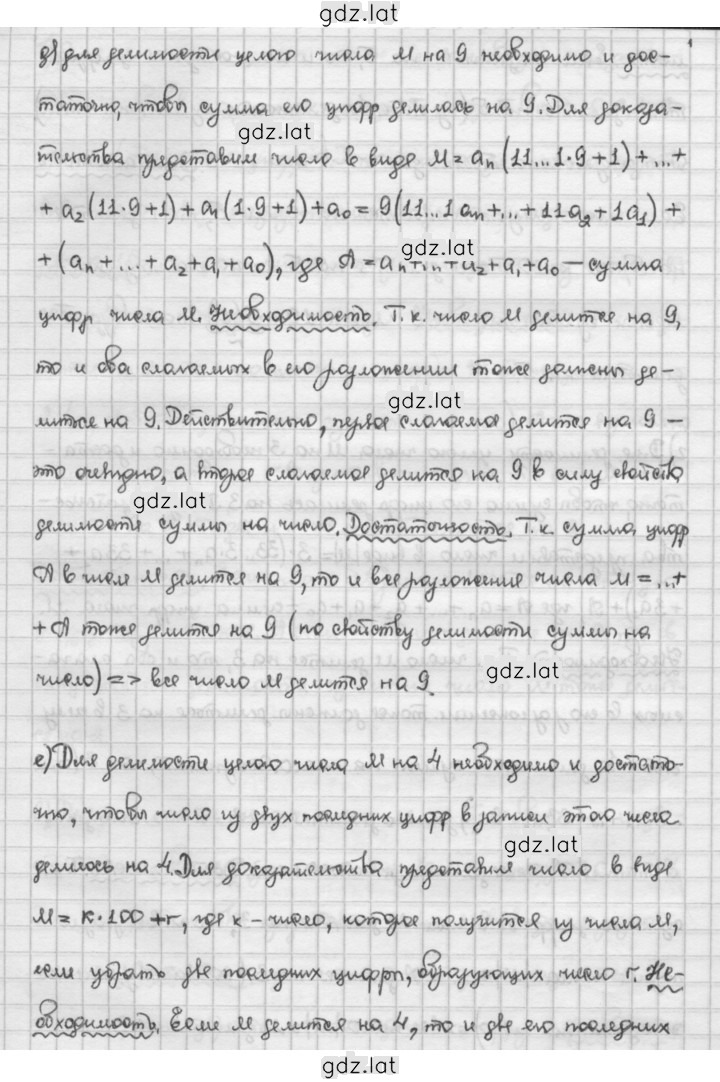 gdz.lat
д) Для делимости целого числа М на 9 необходимо и дос-
таточно, чтобы сумма его цифр делилась на 9. Для доказа-
gdz.lat
тельства представим число в виде М = aₙ(11...1·9+1)+...+
+ a₂(11·9+1)+a₁(1·9+1)+a₀ = 9(11...1aₙ+...+11a₂+1a₁)+
gdz.lat
+(aₙ+...+a₂+a₁+a₀), где А = aₙ+...+a₂+a₁+a₀ — сумма
цифр числа М. Необходимость. Т.к. число М делится на 9,
то и оба слагаемых в его разложении тоже должны де-
gdz.lat
литься на 9. Действительно, первое слагаемое делится на 9 –
это очевидно, а второе слагаемое делится на 9 в силу свойства
gdz.lat
делимости суммы на число. Достаточность. Т.к. сумма цифр
А в числе М делится на 9, то и все разложение числа М = ...+
+ А тоже делится на 9 (по свойству делимости суммы на
число) => все число М делится на 9.
gdz.lat
е) Для делимости целого числа М на 4 необходимо и достаточ-
но, чтобы число из двух последних цифр в записи этого числа
gdz.lat
делилось на 4. Для доказательства представим число в виде
М = к·100+r, где к – число, которое получится из числа М,
если убрать две последних цифры, образующих число r. Не-
обходимость. Если М делится на 4, то и две его последних
gdz.lat